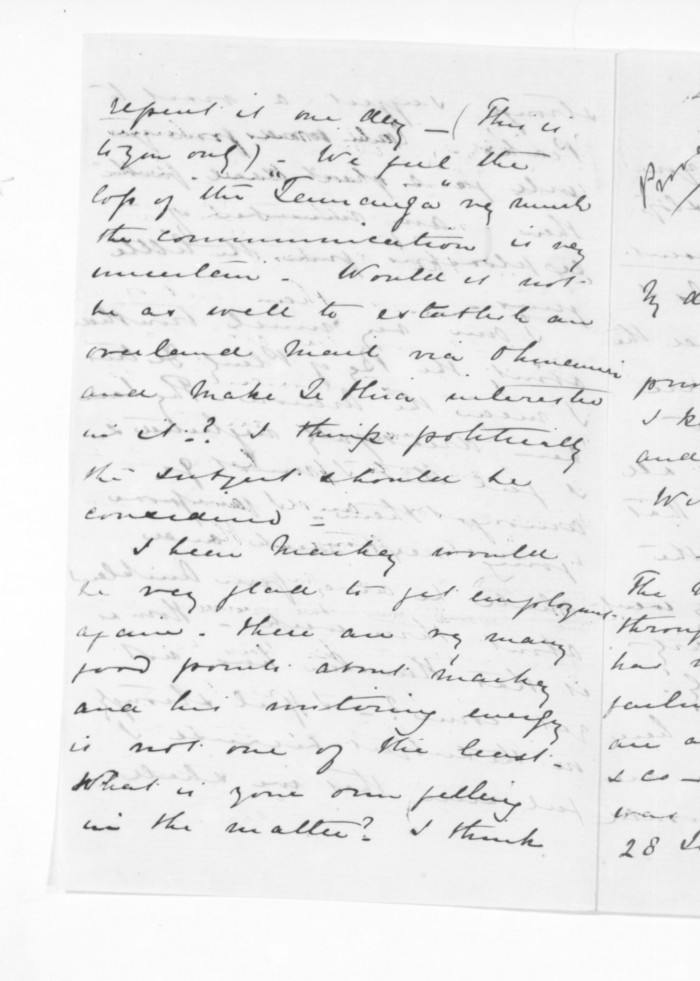 repent it one day — (This is
to you only) — We feel the
loss of the "Tauranga" vy much
the communication is vy
uncertain — Would it not
be as well to establish an
overland Mail via Ohinemuri
and make Te Hira interested
in it —? I think politically
the subject should be
considered —
I hear Mackay would
be very glad to get employment
again — there are vy many
good points about Mackay
and his untiring energy
is not one of the least —
What is your own feeling
in the matter? — I think
The
and
28